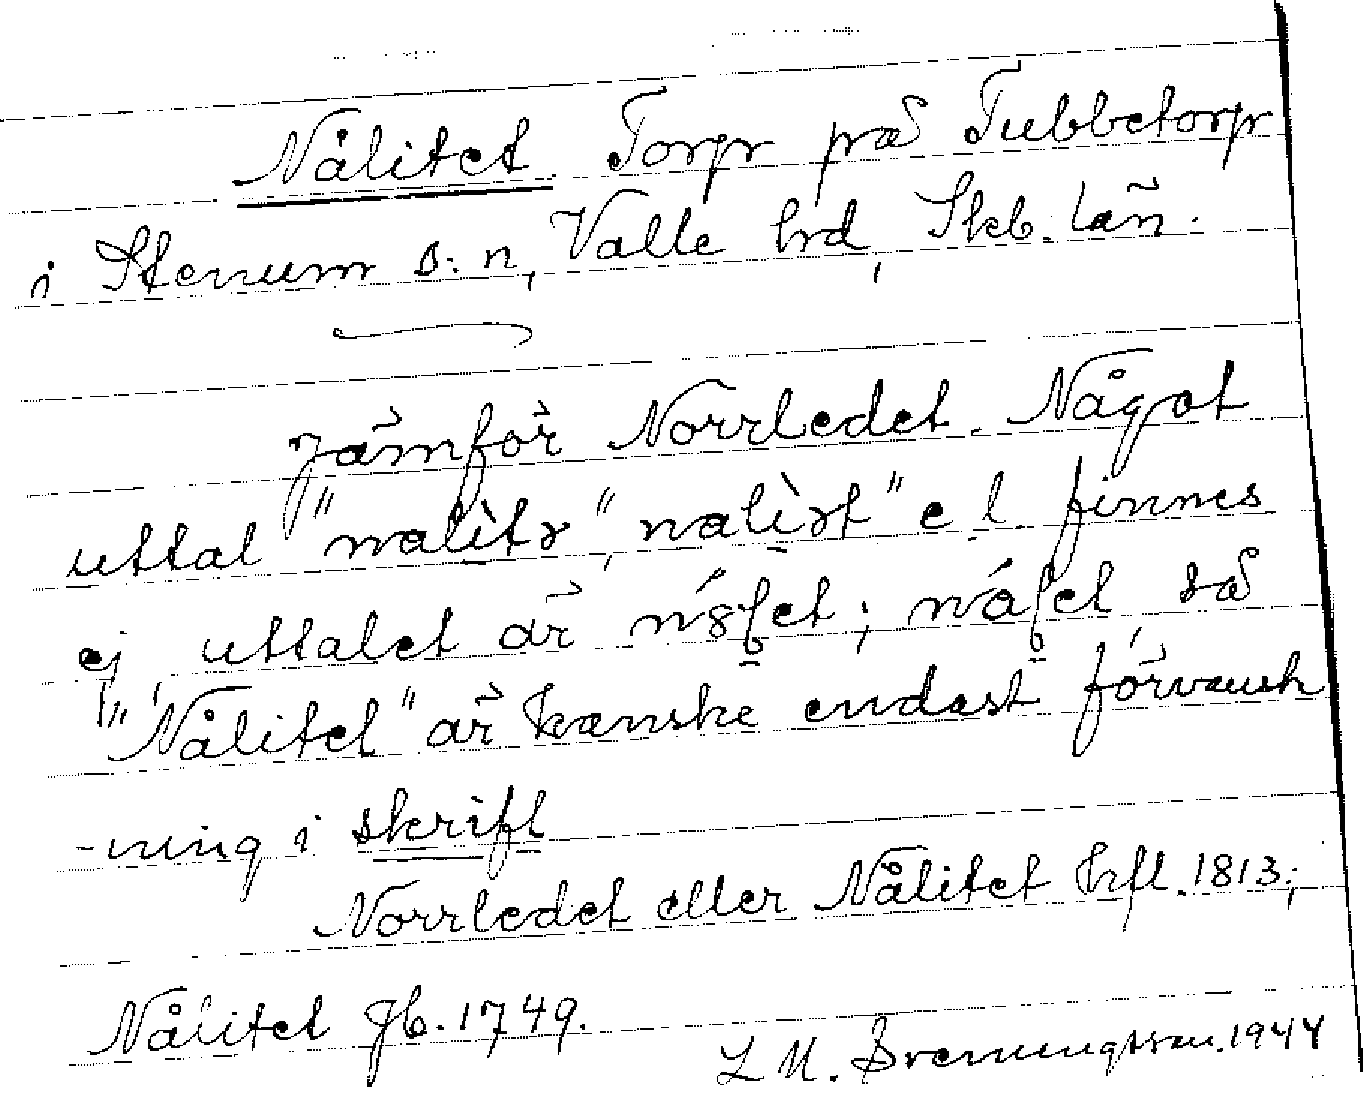 Nålitet Torp på Tubbetorp
i Stenum s:n, Valle hrd, Skb. län.
Jämför Norrledet. Något
uttal "nalìtə", "nalìət" e.l. finnes
ej, uttalet är
"Nålitet" är kanske endast förvansk
-ning i skrift
Norrledet eller Nålitet hfl. 1813;
Nålitet jb. 1749.
1944